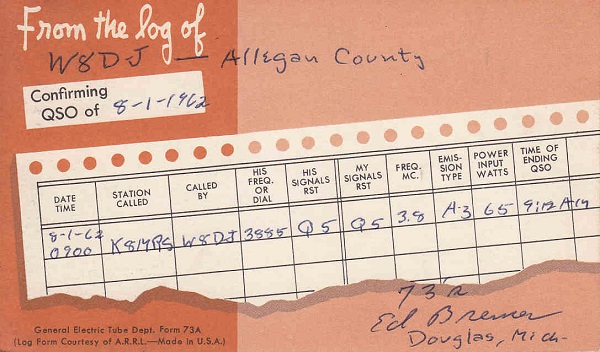 From the log of
W8DJ — Allegan County
Confirming
QSO of 8-1-1962
DATE TIME | STATION CALLED | CALLED BY | HIS FREQ. OR DIAL | HIS SIGNALS RST | MY SIGNALS RST | FREQ. MC. | EMIS- SION TYPE | POWER INPUT WATTS | TIME OF ENDING QSO
8-1-62 0900 | W8DJ | 3885 | Q5 | Q5 | 3.8 | A-3 | 65 | 9:12 AM
73's
Ed Bremer
Douglas, Mich-
General Electric Tube Dept. Form 73A
(Log Form Courtesy of A.R.R.L.—Made in U.S.A.)